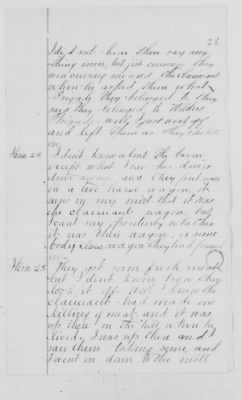 22
I did not hear them say any
thing more, but just cursing. they
was cursing me and the claimant
when he asked them what
Brigade they belonged to. They
said they belonged to
Brigade. Well I just went off
and left them as
Item 24 I don't know about the Corn
except what I saw the
drive away, and they put
in a two horse wagon, it
my mind that it was
the claimant wagon, but
I cant say positively whether
it was their wagon, or some
body else's wagon they had
Item 25 They got some fresh meat
but I don't know how they
took it off. Well, I know the
claimant had made one
killing of meat, and it was
up there in the hill where he
lived. I was up there and
saw them taking some and
I went on down to the mill